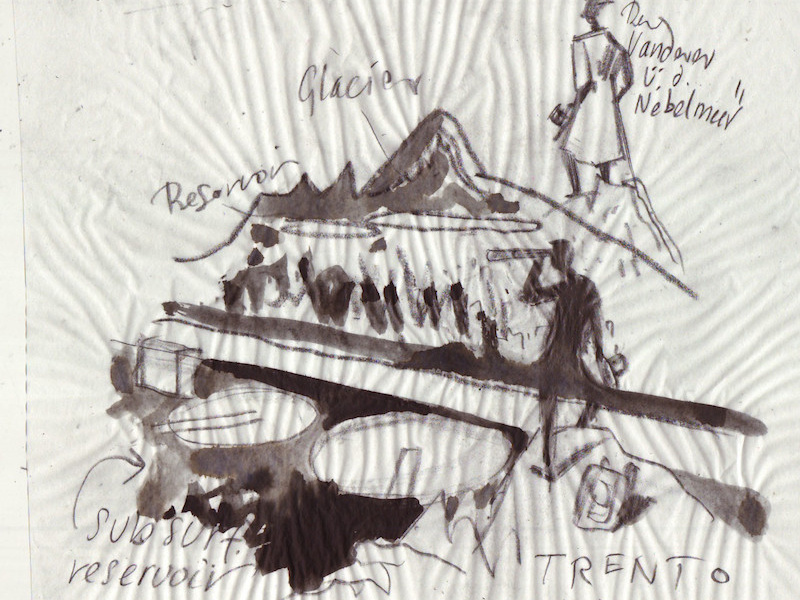 Der
Wanderer
ü. d.
Nebelmeer"
Glacier
Reservoir
Subsurf.
reservoir
TRENTO